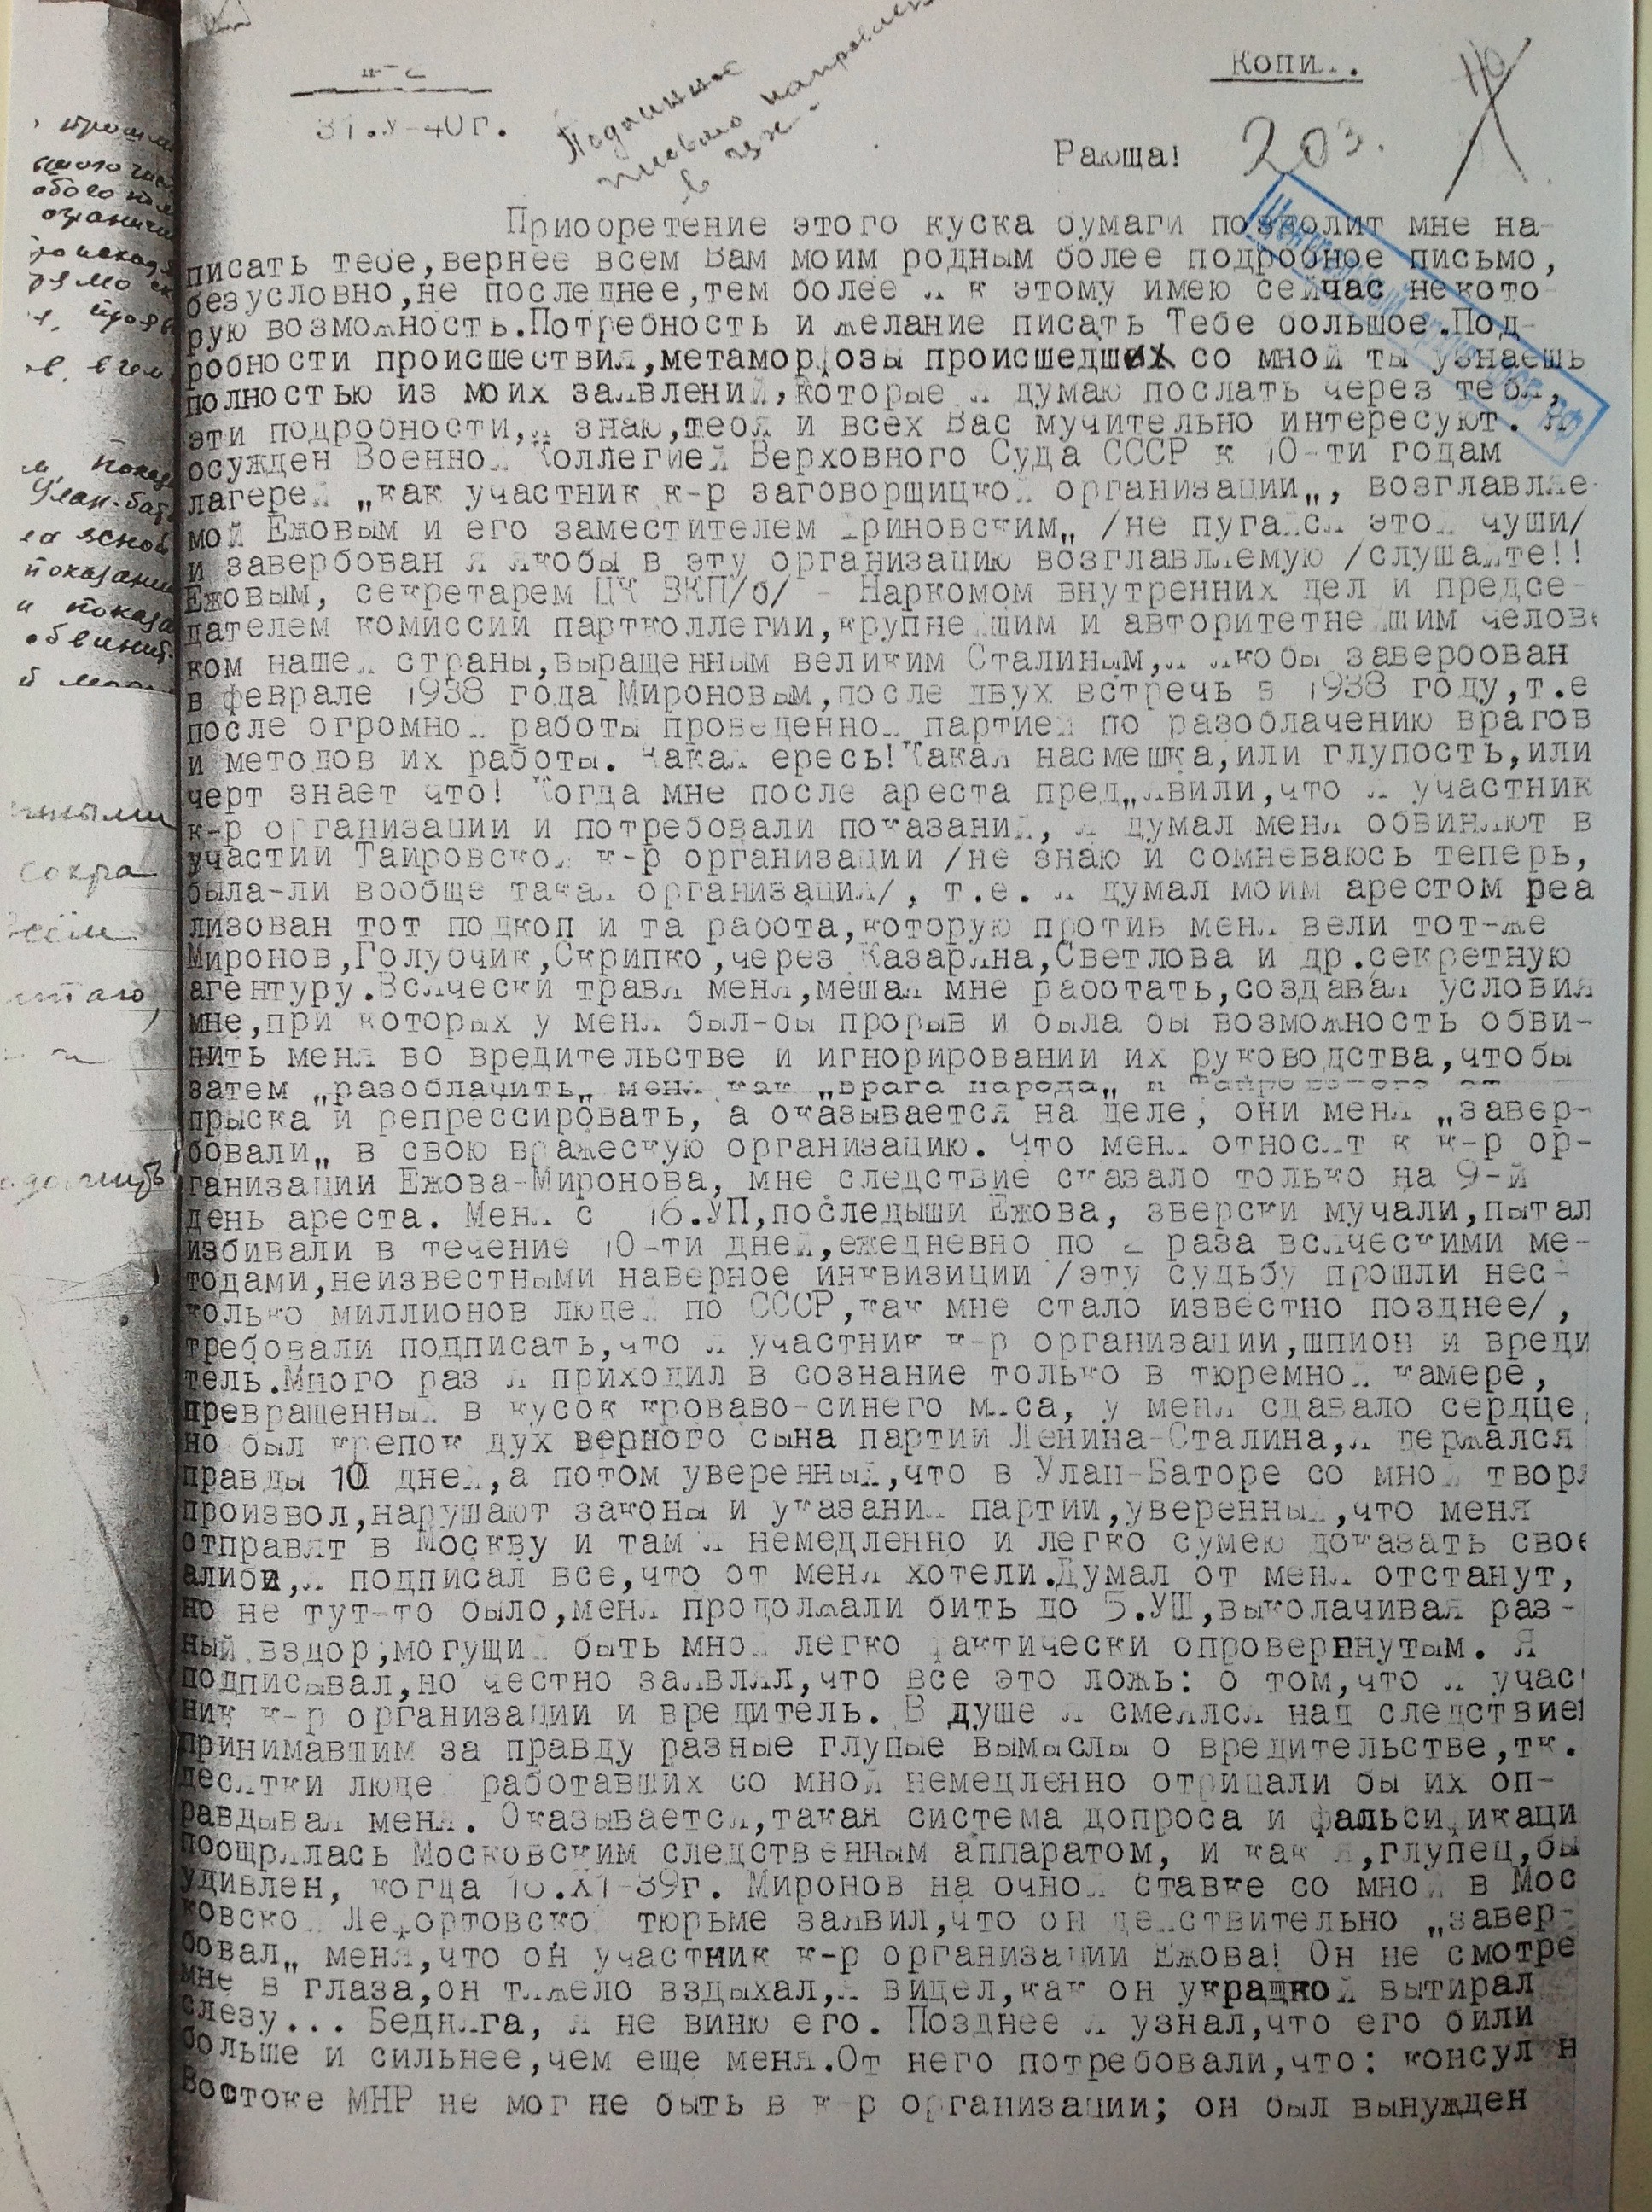 Копия.
31.У-40г.
Подлинник
письмо направлено
в
203.
Раюша!
Приобретение этого куска бумаги позволит мне на-
писать тебе,вернее всем Вам моим родным более подробное письмо,
безусловно,не последнее,тем более я к этому имею сейчас некото-
рую возможность.Потребность и желание писать Тебе большое.Под-
робности происшествия,метаморфозы происшедших со мной ты узнаешь
полностью из моих заявлений,которые я думаю послать через тебя,
эти подробности,я знаю,тебя и всех Вас мучительно интересуют. Я
осужден Военной Коллегией Верховного Суда СССР к 10-ти годам
лагерей „как участник к-р заговорщицкой организации„, возглавляе-
мой Ежовым и его заместителем Фриновским„ /не пугайся этой чуши/
и завербован я якобы в эту организацию возглавляемую /слушайте!!
Ежовым, секретарем ЦК ВКП/б/ - Наркомом внутренних дел и предсе-
дателем комиссии партколлегии,крупнейшим и авторитетнейшим челове
ком нашей страны,выращенным великим Сталиным,я якобы завербован
в феврале 1938 года Мироновым,после двух встречь в 1938 году,т.е
после огромной работы проведенной партией по разоблачению врагов
и методов их работы. Какая ересь!Какая насмешка,или глупость,или
черт знает что! Когда мне после ареста пред„явили,что я участник
к-р организации и потребовали показания, я думал меня обвиняют в
участии Таировской к-р организации /не знаю и сомневаюсь теперь,
была-ли вообще такая организация/, т.е. я думал моим арестом реа
лизован тот подкоп и та работа,которую против меня вели тот-же
Миронов,Голубчик,Скрипко,через Казаряна,Светлова и др.секретную
агентуру.Всячески травя меня,мешая мне работать,создавая условия
мне,при которых у меня был-бы прорыв и была бы возможность обви-
нить меня во вредительстве и игнорировании их руководства,чтобы
затем „разоблачить„ меня как „врага народа„ и Таировского от-
прыска и репрессировать, а оказывается на деле, они меня „завер-
бовали„ в свою вражескую организацию. Что меня относят к к-р ор-
ганизации Ежова-Миронова, мне следствие сказало только на 9-й
день ареста. Меня с 16.УП,последыши Ежова, зверски мучали,пытал
избивали в течение 10-ти дней,ежедневно по 2 раза всяческими ме-
тодами,неизвестными наверное инквизиции /эту судьбу прошли нес-
колько миллионов людей по СССР,как мне стало известно позднее/,
требовали подписать,что я участник к-р организации,шпион и вреди
тель.Много раз я приходил в сознание только в тюремной камере,
превращенный в кусок кроваво-синего мяса, у меня сдавало сердце,
но был крепок дух верного сына партии Ленина-Сталина,я держался
правды 10 дней,а потом уверенный,что в Улан-Баторе со мной творя
произвол,нарушают законы и указания партии,уверенный,что меня
отправят в Москву и там я немедленно и легко сумею доказать свое
алиби,я подписал все,что от меня хотели.Думал от меня отстанут,
но не тут-то было,меня продолжали бить до 5.УШ,выколачивая раз-
ный вздор,могущий быть мной легко фактически опровергнутым. Я
подписывал,но честно заявлял,что все это ложь: о том,что я учас
ник к-р организации и вредитель. В душе я смеялся над следствием
принимавшим за правду разные глупые вымыслы о вредительстве,тк.
десятки людей работавших со мной немедленно отрицали бы их оп-
равдывая меня. Оказывается,такая система допроса и фальсификаци
поощрялась Московским следственным аппаратом, и как я,глупец,бы
удивлен, когда 10.Х1-39г. Миронов на очной ставке со мной в Мос
ковской Лефортовской тюрьме заявил,что он действительно „завер-
бовал„ меня,что он участник к-р организации Ежова! Он не смотре
мне в глаза,он тяжело вздыхал,я видел,как он украдкой вытирал
слезу... Бедняга, я не виню его. Позднее я узнал,что его били
больше и сильнее,чем еще меня.От него потребовали,что: консул н
Востоке МНР не мог не быть в к-р организации; он был вынужден